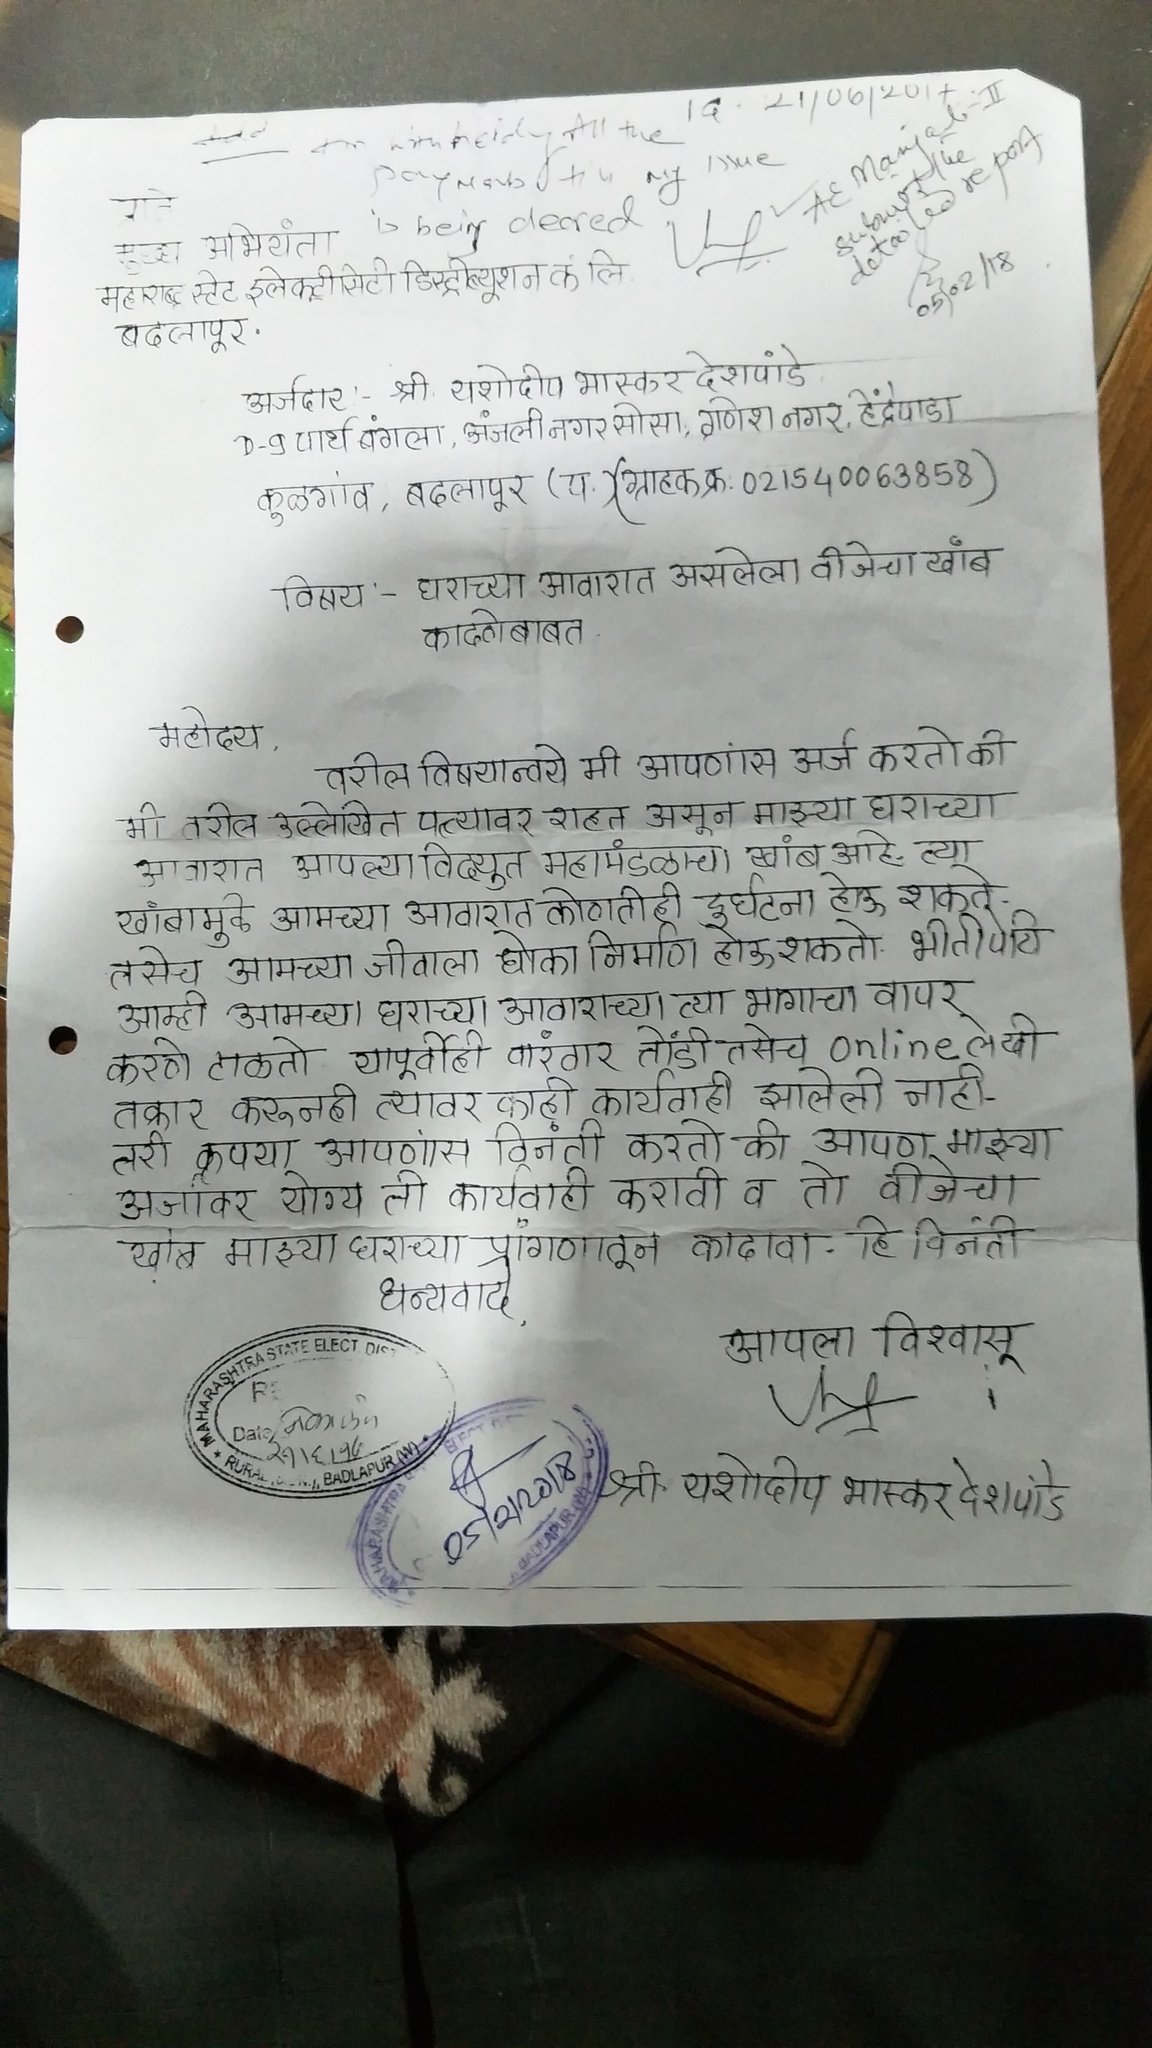 21/06/2017
All the
payments till my issue
is being
AE Manjarli-II
submit the
detailed report
05/02/18
प्रति
मुख्य अभियंता
महाराष्ट्र स्टेट इलेक्ट्रीसिटी डिस्ट्रीब्युशन कं लि.
बदलापूर.
अर्जदार :- श्री. यशोदीप भास्कर देशपांडे
D-9 पार्थ बंगला, अंजली नगर सोसा, गणेश नगर, हेंद्रेपाडा
कुळगांव, बदलापूर (प.) (ग्राहक क्र: 021540063858)
विषय :- घराच्या आवारात असलेला वीजेचा खांब
काढणेबाबत.
महोदय,
वरील विषयान्वये मी आपणांस अर्ज करतो की
मी वरील उल्लेखित पत्त्यावर राहत असून माझ्या घराच्या
आवारात आपल्या विद्युत महामंडळाचा खांब आहे. त्या
खांबामुळे आमच्या आवारात कोणतीही दुर्घटना होऊ शकते.
तसेच आमच्या जीवाला धोका निर्माण होऊ शकतो. भीतीपोटी
आम्ही आमच्या घराच्या आवाराच्या त्या भागाचा वापर
करणे टाळतो. यापूर्वीही वारंवार तोंडी तसेच online लेखी
तक्रार करूनही त्यावर काही कार्यवाही झालेली नाही.
तरी कृपया आपणांस विनंती करतो की आपण माझ्या
अर्जावर योग्य ती कार्यवाही करावी व तो वीजेचा
खांब माझ्या घराच्या प्रांगणातून काढावा. हि विनंती
धन्यवाद,
आपला विश्वासू
श्री. यशोदीप भास्कर देशपांडे
MAHARASHTRA STATE ELECT. DIS
Date
BADLAPUR (W)
05/2/2018
BADLAPUR (W)